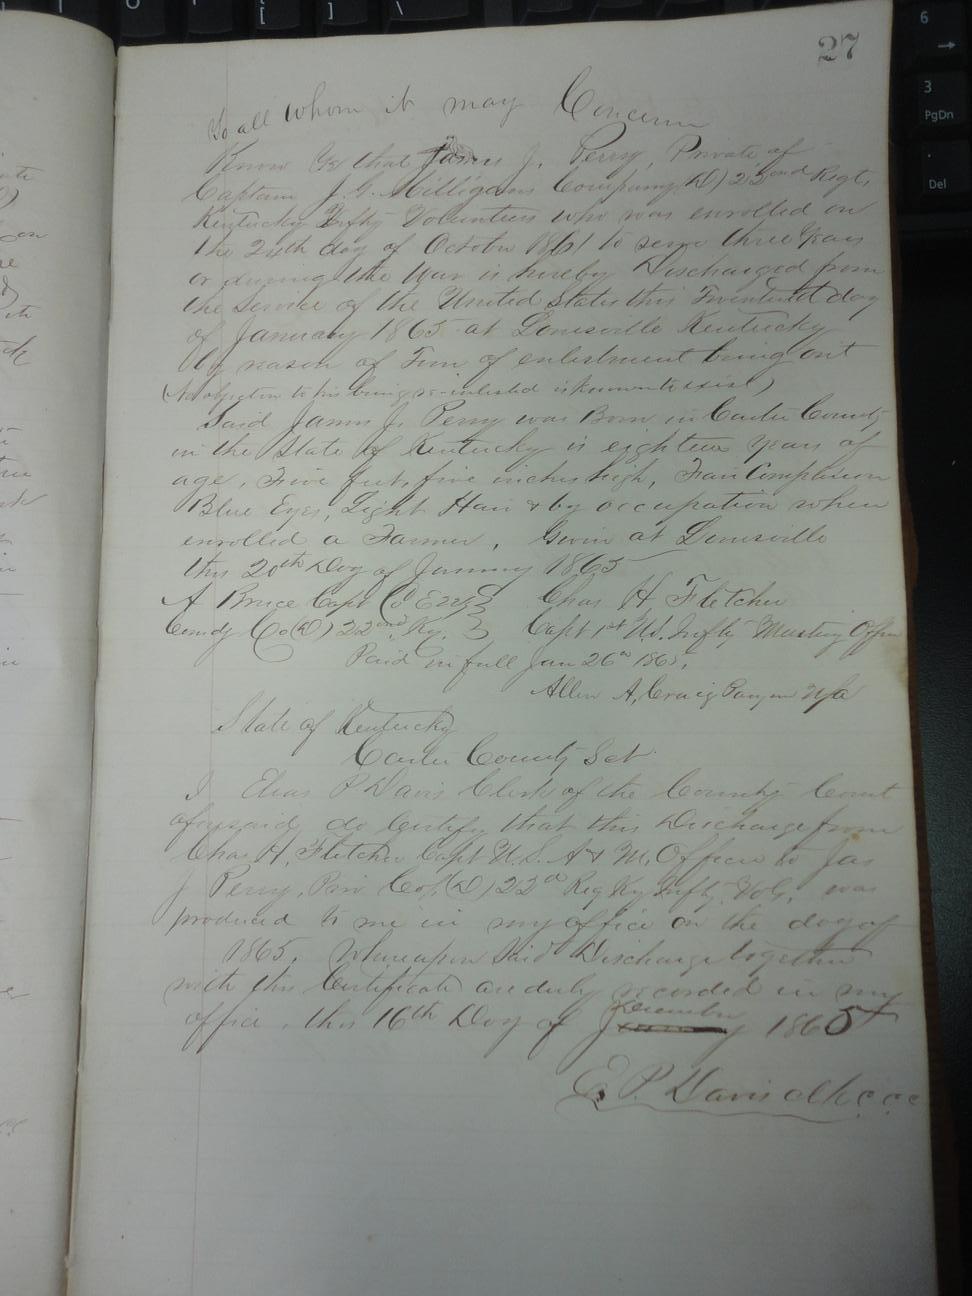 27
To all whom it may Concern
Know Ye that James J. Perry, Private of
Captain J. G. Milligans Company (D) 22nd Regt,
Kentucky Infty Volunteers who was enrolled on
the 24th day of October 1861 to serve three years
or during the War is hereby Discharged from
the service of the United States this Twentieth day
of January 1865 at Louisville Kentucky
By reason of Term of enlistment being out
(No objection to his being re-enlisted is known to exist)
Said James J. Perry was Born in Carter County
in the State of Kentucky is eighteen years of
age, Five feet, five inches high, Fair Complexion
Blue Eyes, Light Hair & by occupation when
enrolled a Farmer, Given at Louisville
this 20th Day of January 1865
A Bruce Capt Co E 22
Comdg Co (D) 22nd Ky.
Chas H Fletcher
Capt 1st US. Infty Musting Offr
Paid in full Jan 26th 1865,
Allen A, Craig
State of Kentucky
Carter County Sct
I Elias P Davis Clerk of the County Court
aforesaid, do Certify that this Discharge from
Chas H, Fletcher Capt U.S. A & M, Officer to Jas
J Perry, Priv Co, (D) 22d Reg Ky Infty Vols, was
produced to me in my office on the day of
1865, whereupon Said Discharge together
with this Certificate are duly recorded in my
office, this 16th Day of December 1865
E. P. Davis clk c c c